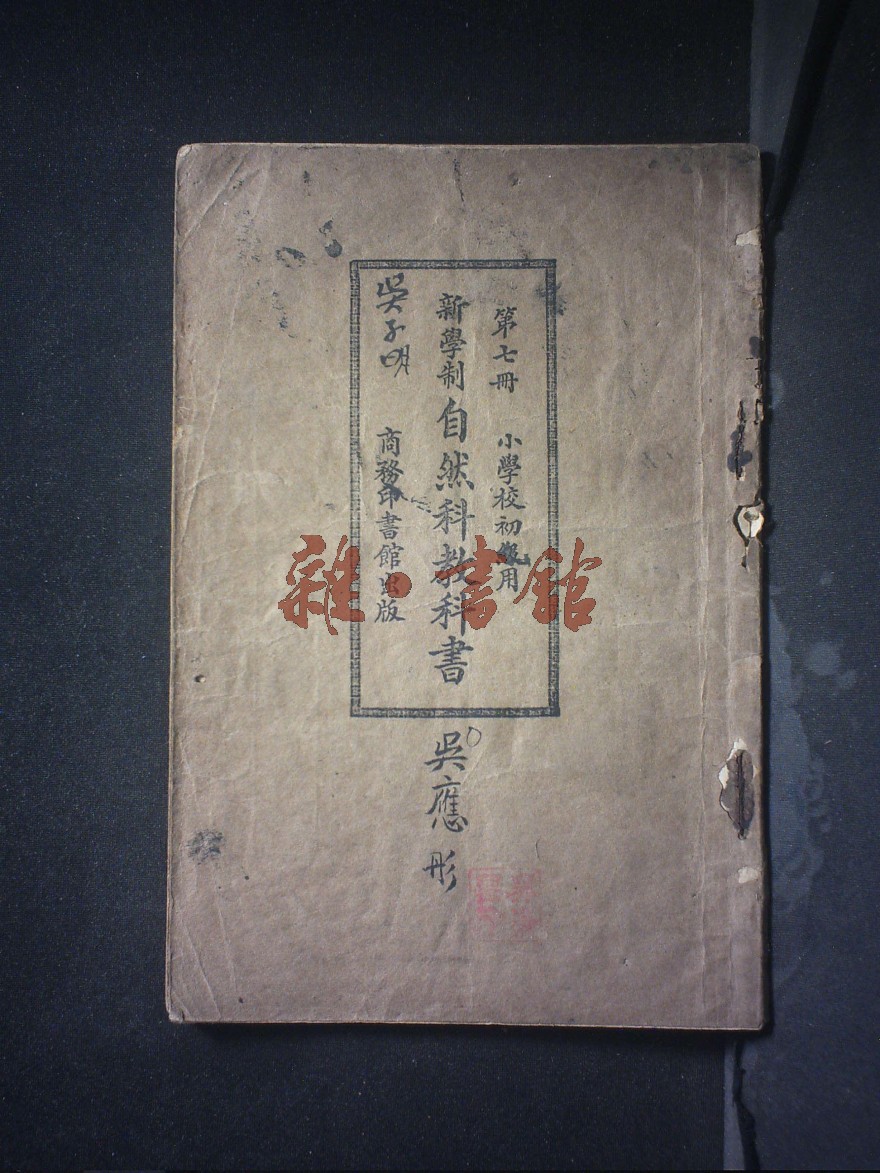 第七冊 小學校初級用
新學制自然科教科書
吳子明
商務印書館出版
吳應彤
雜·書館